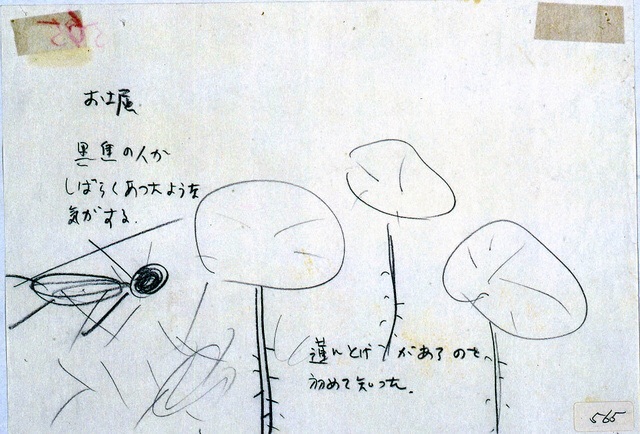 お堀
黒焦の人が
しばらくあったような
気がする.
蓮にとげがあるのを
初めて知った.
565